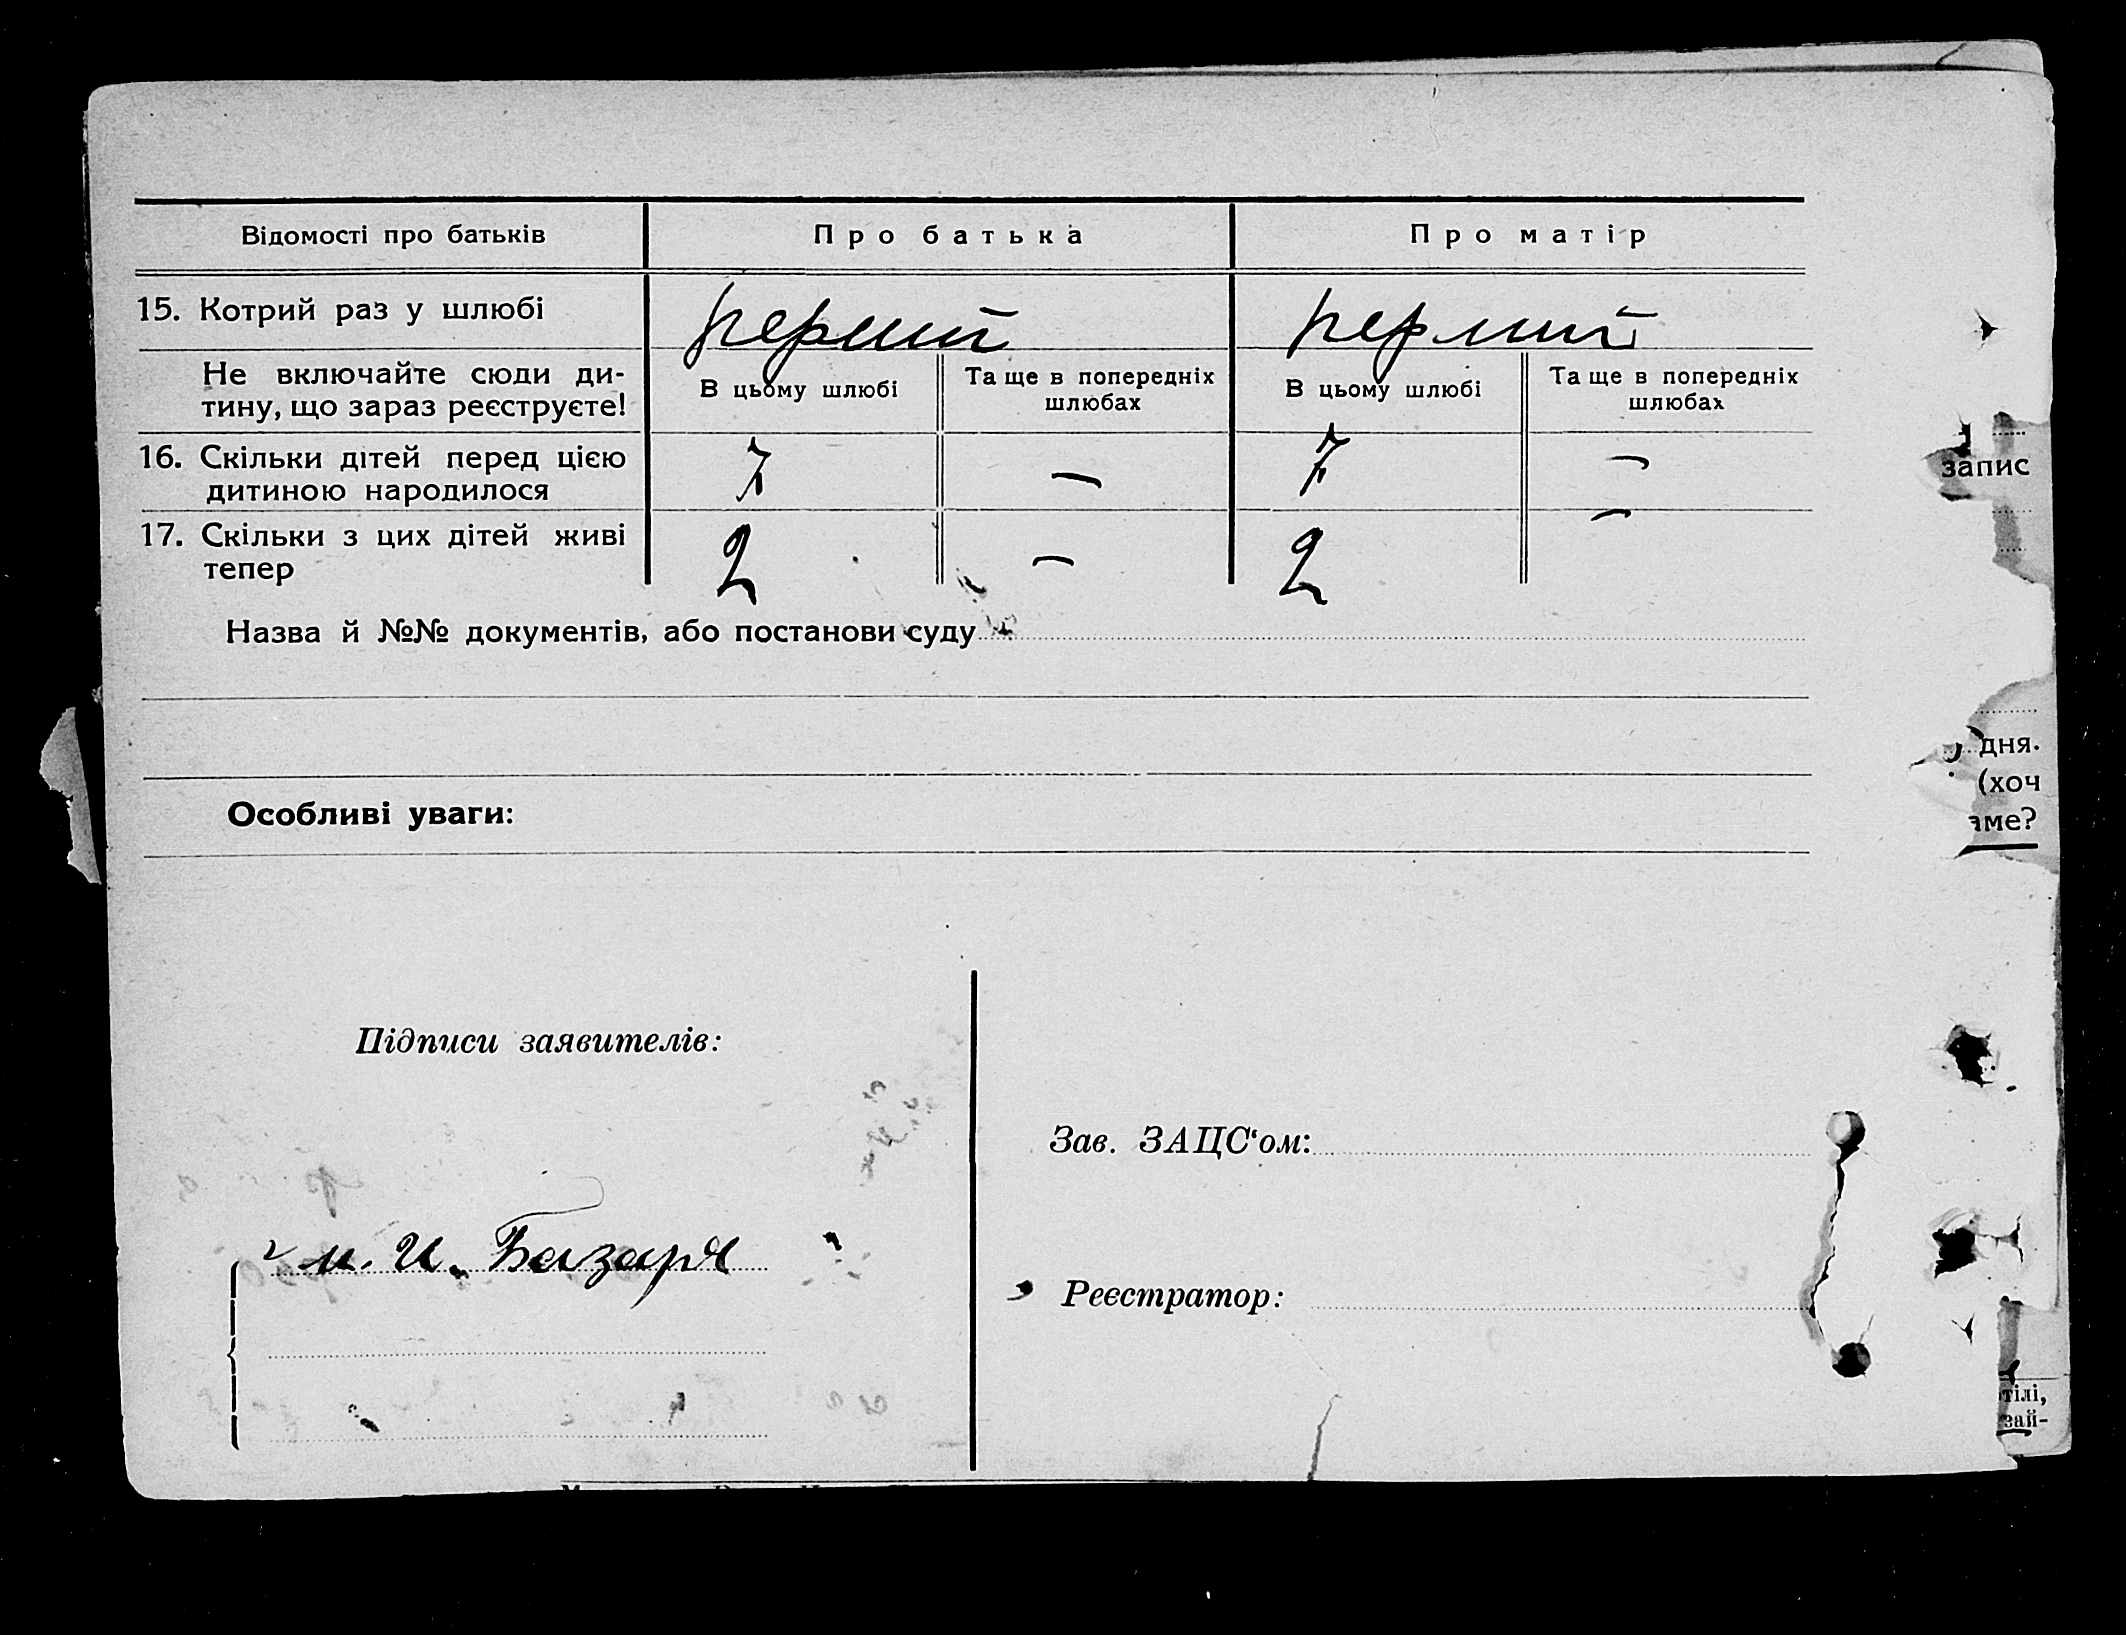 Відомості про батьків Про батька Про матір
15. Котрий раз у шлюбі перший перший
Не включайте сюди ди-
тину, що зараз реєструєте!
В цьому шлюбі Та ще в попередніх шлюбах В цьому шлюбі Та ще в попередніх шлюбах
16. Скільки дітей перед цією
дитиною народилося 7 — 7 —
17. Скільки з цих дітей живі
тепер 2 — 2 —
Назва й №№ документів, або постанови суду
Особливі уваги:
Підписи заявителів:
м. И. Базаря
Зав. ЗАЦС‘ом:
Реєстратор:
запис
дня.
(хоч
аме?
тілі,
зай-